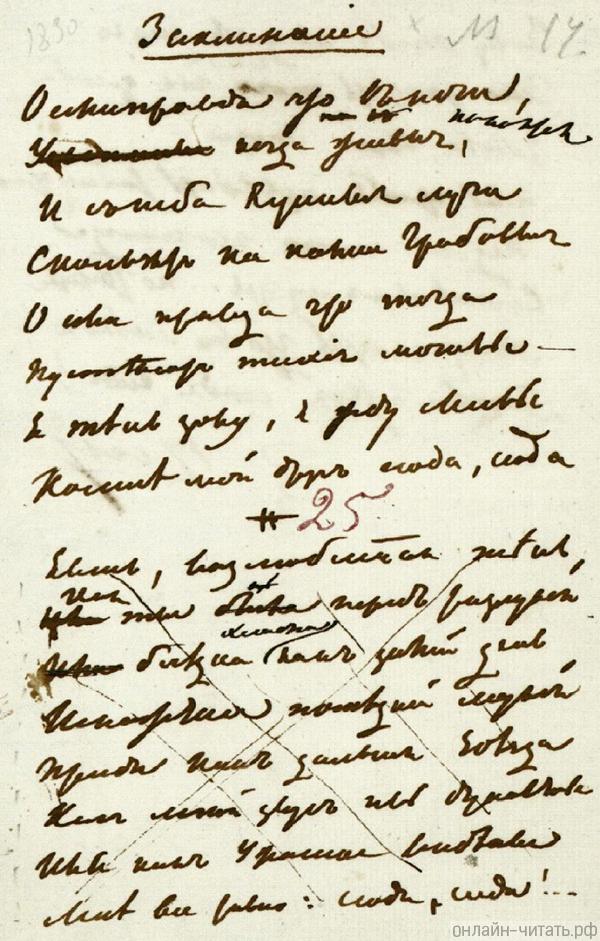 1830
М 17.
Заклинание
О если правда что въ ночи,
Когда покоятся живые,
И съ неба лунные лучи
Скользятъ на камни гробовые
О если правда что тогда
Пустѣютъ тихія могилы —
Я тѣнь зову, я жду Лилы
Ко мнѣ мой другъ сюда, сюда
25
Явись, возлюбленная тѣнь,
Какъ ты была передъ разлукой
Блѣдна хладна какъ зимній день
Искажена послѣдней мукой
Приди какъ дальная звѣзда
Какъ звукъ иль дуновенье
Иль какъ ужасное видѣнье
Мнѣ все равно: сюда, сюда!...
онлайн-читать.рф